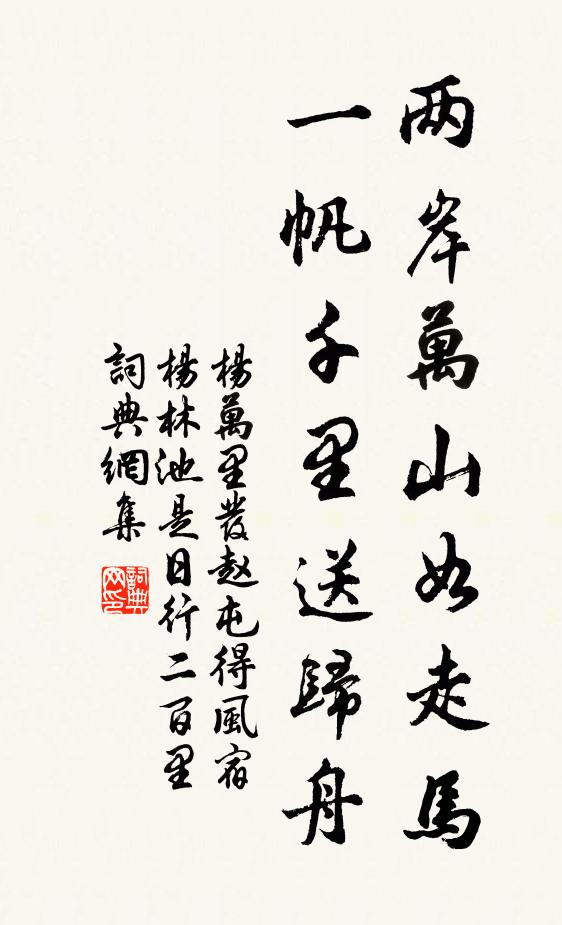 两岸萬山如走馬
一帆千里送歸舟
楊萬里發趙屯得風宿
楊林池是日行二百里
詞典網集
詞典
网印